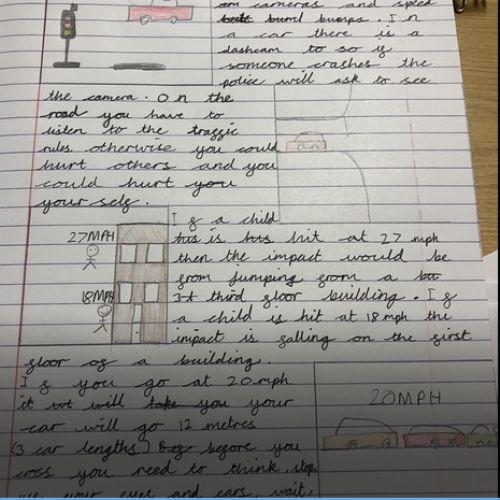 am cameras and speed
bets buml bumps. In
a car there is a
dashcam to so if
someone crashes the
police will ask to see
the camera. On the
road you have to
listen to the traffic
rules otherwise you could
hurt others and you
could hurt you
your self.
If a child
this is his hit at 27 mph
then the impact would be
from jumping from a bu
3t third floor building. If
a child is hit at 18 mph the
impact is falling on the first
floor of a building.
27MPH
18MPH
If you go at 20 mph
it wt will take you your
car will go 12 metres
(3 car lengths) before you
cross you need to think, stop,
use your eyes and ears, wait,
20MPH